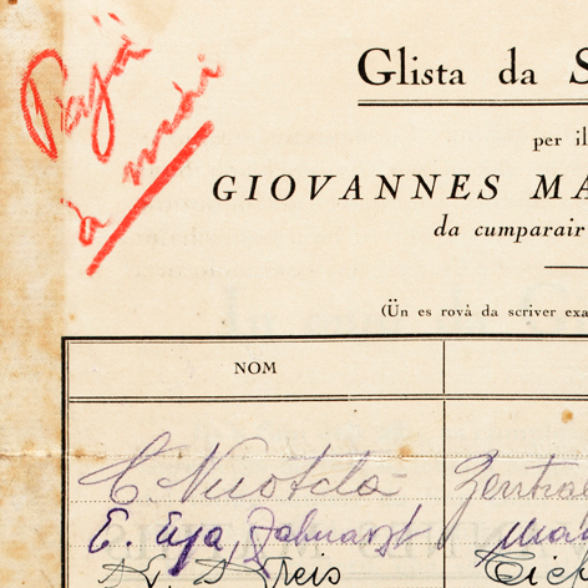 Pajà
à mai
Glista da S
per il
GIOVANNES MA
da cumparair
(Ün es rovà da scriver exa
NOM
C. Nuotclà Zentral
E. Eya, Zahnarzt